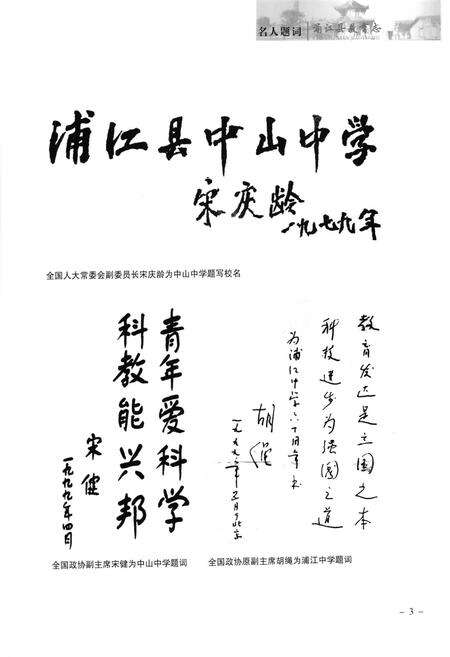 名人题词
浦江县教育志
浦江县中山中学
宋庆龄
一九七九年
全国人大常委会副委员长宋庆龄为中山中学题写校名
青年爱科学
科教能兴邦
宋健
一九九九年四日
教育发达是立国之本
科技进步为强国之道
为浦江中学六十周年书
胡绳
全国政协副主席宋健为中山中学题词
全国政协原副主席胡绳为浦江中学题词
- 3 -